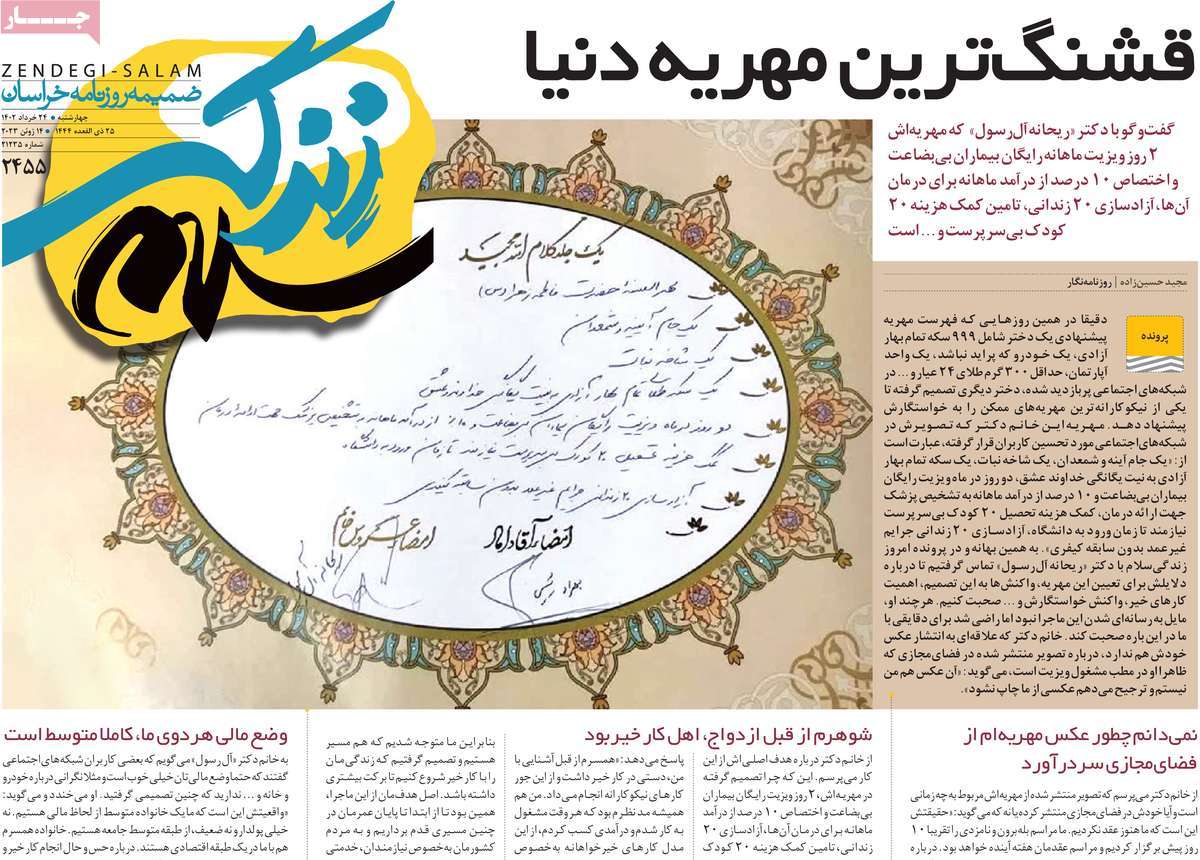 جـــار
ZENDEGI-SALAM
ضمیمه روزنامه خراسان
چهارشنبه • ۲۴ خرداد ۱۴۰۲
۲۵ ذی القعده ۱۴۴۴ • ۱۴ ژوئن ۲۰۲۳
شماره ۲۱۲۳۵
۲۴۵۵
زندگی
سلام
قشنگ‌ترین مهریه دنیا
گفت‌وگو با دکتر «ریحانه آل‌رسول» که مهریه‌اش
۲ روز ویزیت ماهانه رایگان بیماران بی‌بضاعت
و اختصاص ۱۰ درصد از درآمد ماهانه برای درمان
آن‌ها، آزادسازی ۲۰ زندانی، تامین کمک هزینه ۲۰
کودک بی‌سرپرست و... است
مجید حسین‌زاده | روزنامه‌نگار
پرونده
دقیقا در همین روزهایی که فهرست مهریه
پیشنهادی یک دختر شامل ۹۹۹ سکه تمام بهار
آزادی، یک خودرو که پراید نباشد، یک واحد
آپارتمان، حداقل ۳۰۰ گرم طلای ۲۴ عیار و... در
شبکه‌های اجتماعی پربازدید شده، دختر دیگری تصمیم گرفته تا
یکی از نیکوکارانه‌ترین مهریه‌های ممکن را به خواستگارش
پیشنهاد دهد. مهریه این خانم دکتر که تصویرش در
شبکه‌های اجتماعی مورد تحسین کاربران قرار گرفته، عبارت است
از: «یک جام آینه و شمعدان، یک شاخه نبات، یک سکه تمام بهار
آزادی به نیت یگانگی خداوند عشق، دو روز در ماه ویزیت رایگان
بیماران بی‌بضاعت و ۱۰ درصد از درآمد ماهانه به تشخیص پزشک
جهت ارائه درمان، کمک هزینه تحصیل ۲۰ کودک بی‌سرپرست
نیازمند تا زمان ورود به دانشگاه، آزادسازی ۲۰ زندانی جرایم
غیرعمد بدون سابقه کیفری». به همین بهانه و در پرونده امروز
زندگی‌سلام با دکتر «ریحانه آل‌رسول» تماس گرفتیم تا درباره
دلایلش برای تعیین این مهریه، واکنش‌ها به این تصمیم، اهمیت
کارهای خیر، واکنش خواستگارش و... صحبت کنیم. هرچند او،
مایل به رسانه‌ای شدن این ماجرا نبود اما راضی شد برای دقایقی با
ما در این باره صحبت کند. خانم دکتر که علاقه‌ای به انتشار عکس
خودش هم ندارد، درباره تصویر منتشر شده در فضای مجازی که
ظاهرا او در مطب مشغول ویزیت است، می‌گوید: «آن عکس هم من
نیستم و ترجیح می‌دهم عکسی از ما چاپ نشود».
یک جلد کلام الله مجید
مهر السنه حضرت فاطمه زهرا (س)
یک جام آیینه و شمعدان
یک شاخه نبات
یک سکه طلا تمام بهار آزادی به نیت یگانگی خداوند عشق
دو روز در ماه ویزیت رایگان بیماران بی بضاعت و ۱۰٪ از درآمد ماهانه به تشخیص پزشک جهت ارائه درمان
کمک هزینه تحصیل ۲۰ کودک بی سرپرست نیازمند تا زمان ورود به دانشگاه
آزادسازی ۲۰ زندانی جرایم غیرعمد بدون سابقه کیفری
امضاء آقا داماد
امضاء عروس خانم
نمی‌دانم چطور عکس مهریه‌ام از
فضای مجازی سر درآورد
از خانم دکتر می‌پرسم که تصویر منتشر شده از مهریه‌اش مربوط به چه زمانی
است و آیا خودش در فضای مجازی منتشر کرده یا نه که می‌گوید: «حقیقتش
این است که ما هنوز عقد نکردیم. ما مراسم بله‌برون و نامزدی را تقریبا ۱۰
روز پیش برگزار کردیم و مراسم عقدمان هفته آینده خواهد بود. این
شوهرم از قبل ازدواج، اهل کار خیر بود
از خانم دکتر درباره هدف اصلی‌اش از این
کار می‌پرسم. این که چرا تصمیم گرفته
در مهریه‌اش، ۲ روز ویزیت رایگان بیماران
بی‌بضاعت و اختصاص ۱۰ درصد از درآمد
ماهانه برای درمان آن‌ها، آزادسازی ۲۰
زندانی، تامین کمک هزینه ۲۰ کودک
پاسخ می‌دهد: «همسرم از قبل آشنایی با
من، دستی در کار خیر داشت و از این جور
کارهای نیکوکارانه انجام می‌داد. من هم
همیشه مد نظرم بود که هر وقت مشغول
به کار شدم و درآمدی کسب کردم، از این
مدل کارهای خیرخواهانه به خصوص
بنابراین ما متوجه شدیم که هم مسیر
هستیم و تصمیم گرفتیم که زندگی‌مان
را با کار خیر شروع کنیم تا برکت بیشتری
داشته باشد. اصل هدفمان از این ماجرا،
همین بود تا از ابتدا تا پایان عمرمان در
چنین مسیری قدم برداریم و به مردم
کشورمان به خصوص نیازمندان، خدمتی
وضع مالی هردوی ما، کاملا متوسط است
به خانم دکتر «آل‌رسول» می‌گویم که بعضی کاربران شبکه‌های اجتماعی
گفتند که حتما وضع مالی‌تان خیلی خوب است و مثلا نگرانی درباره خودرو
و خانه و ... ندارید که چنین تصمیمی گرفتید. او می‌خندد و می‌گوید:
«واقعیتش این است که ما یک خانواده متوسط از لحاظ مالی هستیم. نه
خیلی پولدار و نه ضعیف، از طبقه متوسط جامعه هستیم. خانواده همسرم
هم با ما در یک طبقه اقتصادی هستند. درباره حس و حال انجام کار خیر